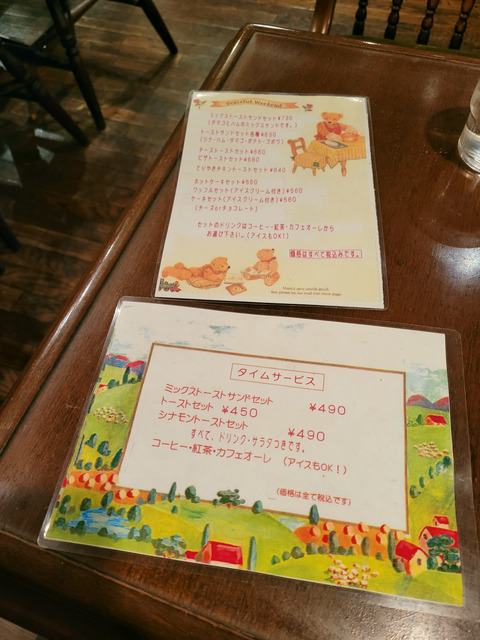 Peaceful Weekend
ミックストーストサンドセット¥730
(タマゴとハムのミックスサンドです。)
トーストサンドセット各種¥630
(ツナ・ハム・タマゴ・ポテト・コボウ)
チーズトーストセット¥660
ピザトーストセット¥680
てりやきチキントーストセット¥640
ホットケーキセット¥580
ワッフルセット(アイスクリーム付き)¥560
ケーキセット(アイスクリーム付き)¥580
(チーズorチョコレート)
セットのドリンクはコーヒー・紅茶・カフェオーレから
お選び下さい。(アイスもOK!)
価格はすべて税込みです。
タイムサービス
ミックストーストサンドセット ¥490
トーストセット ¥450
シナモントーストセット ¥490
すべて、ドリンク・サラダつきです。
コーヒー・紅茶・カフェオーレ (アイスもOK!)
(価格は全て税込です)